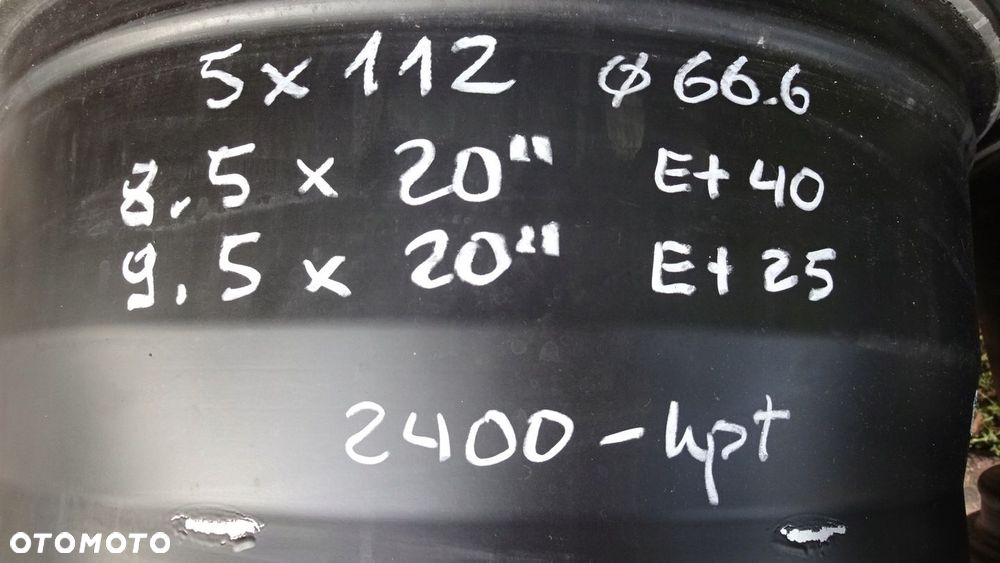 5x112 ø 66.6
8.5 x 20" Et 40
9.5 x 20" Et 25
2400 - kpt
OTOMOTO